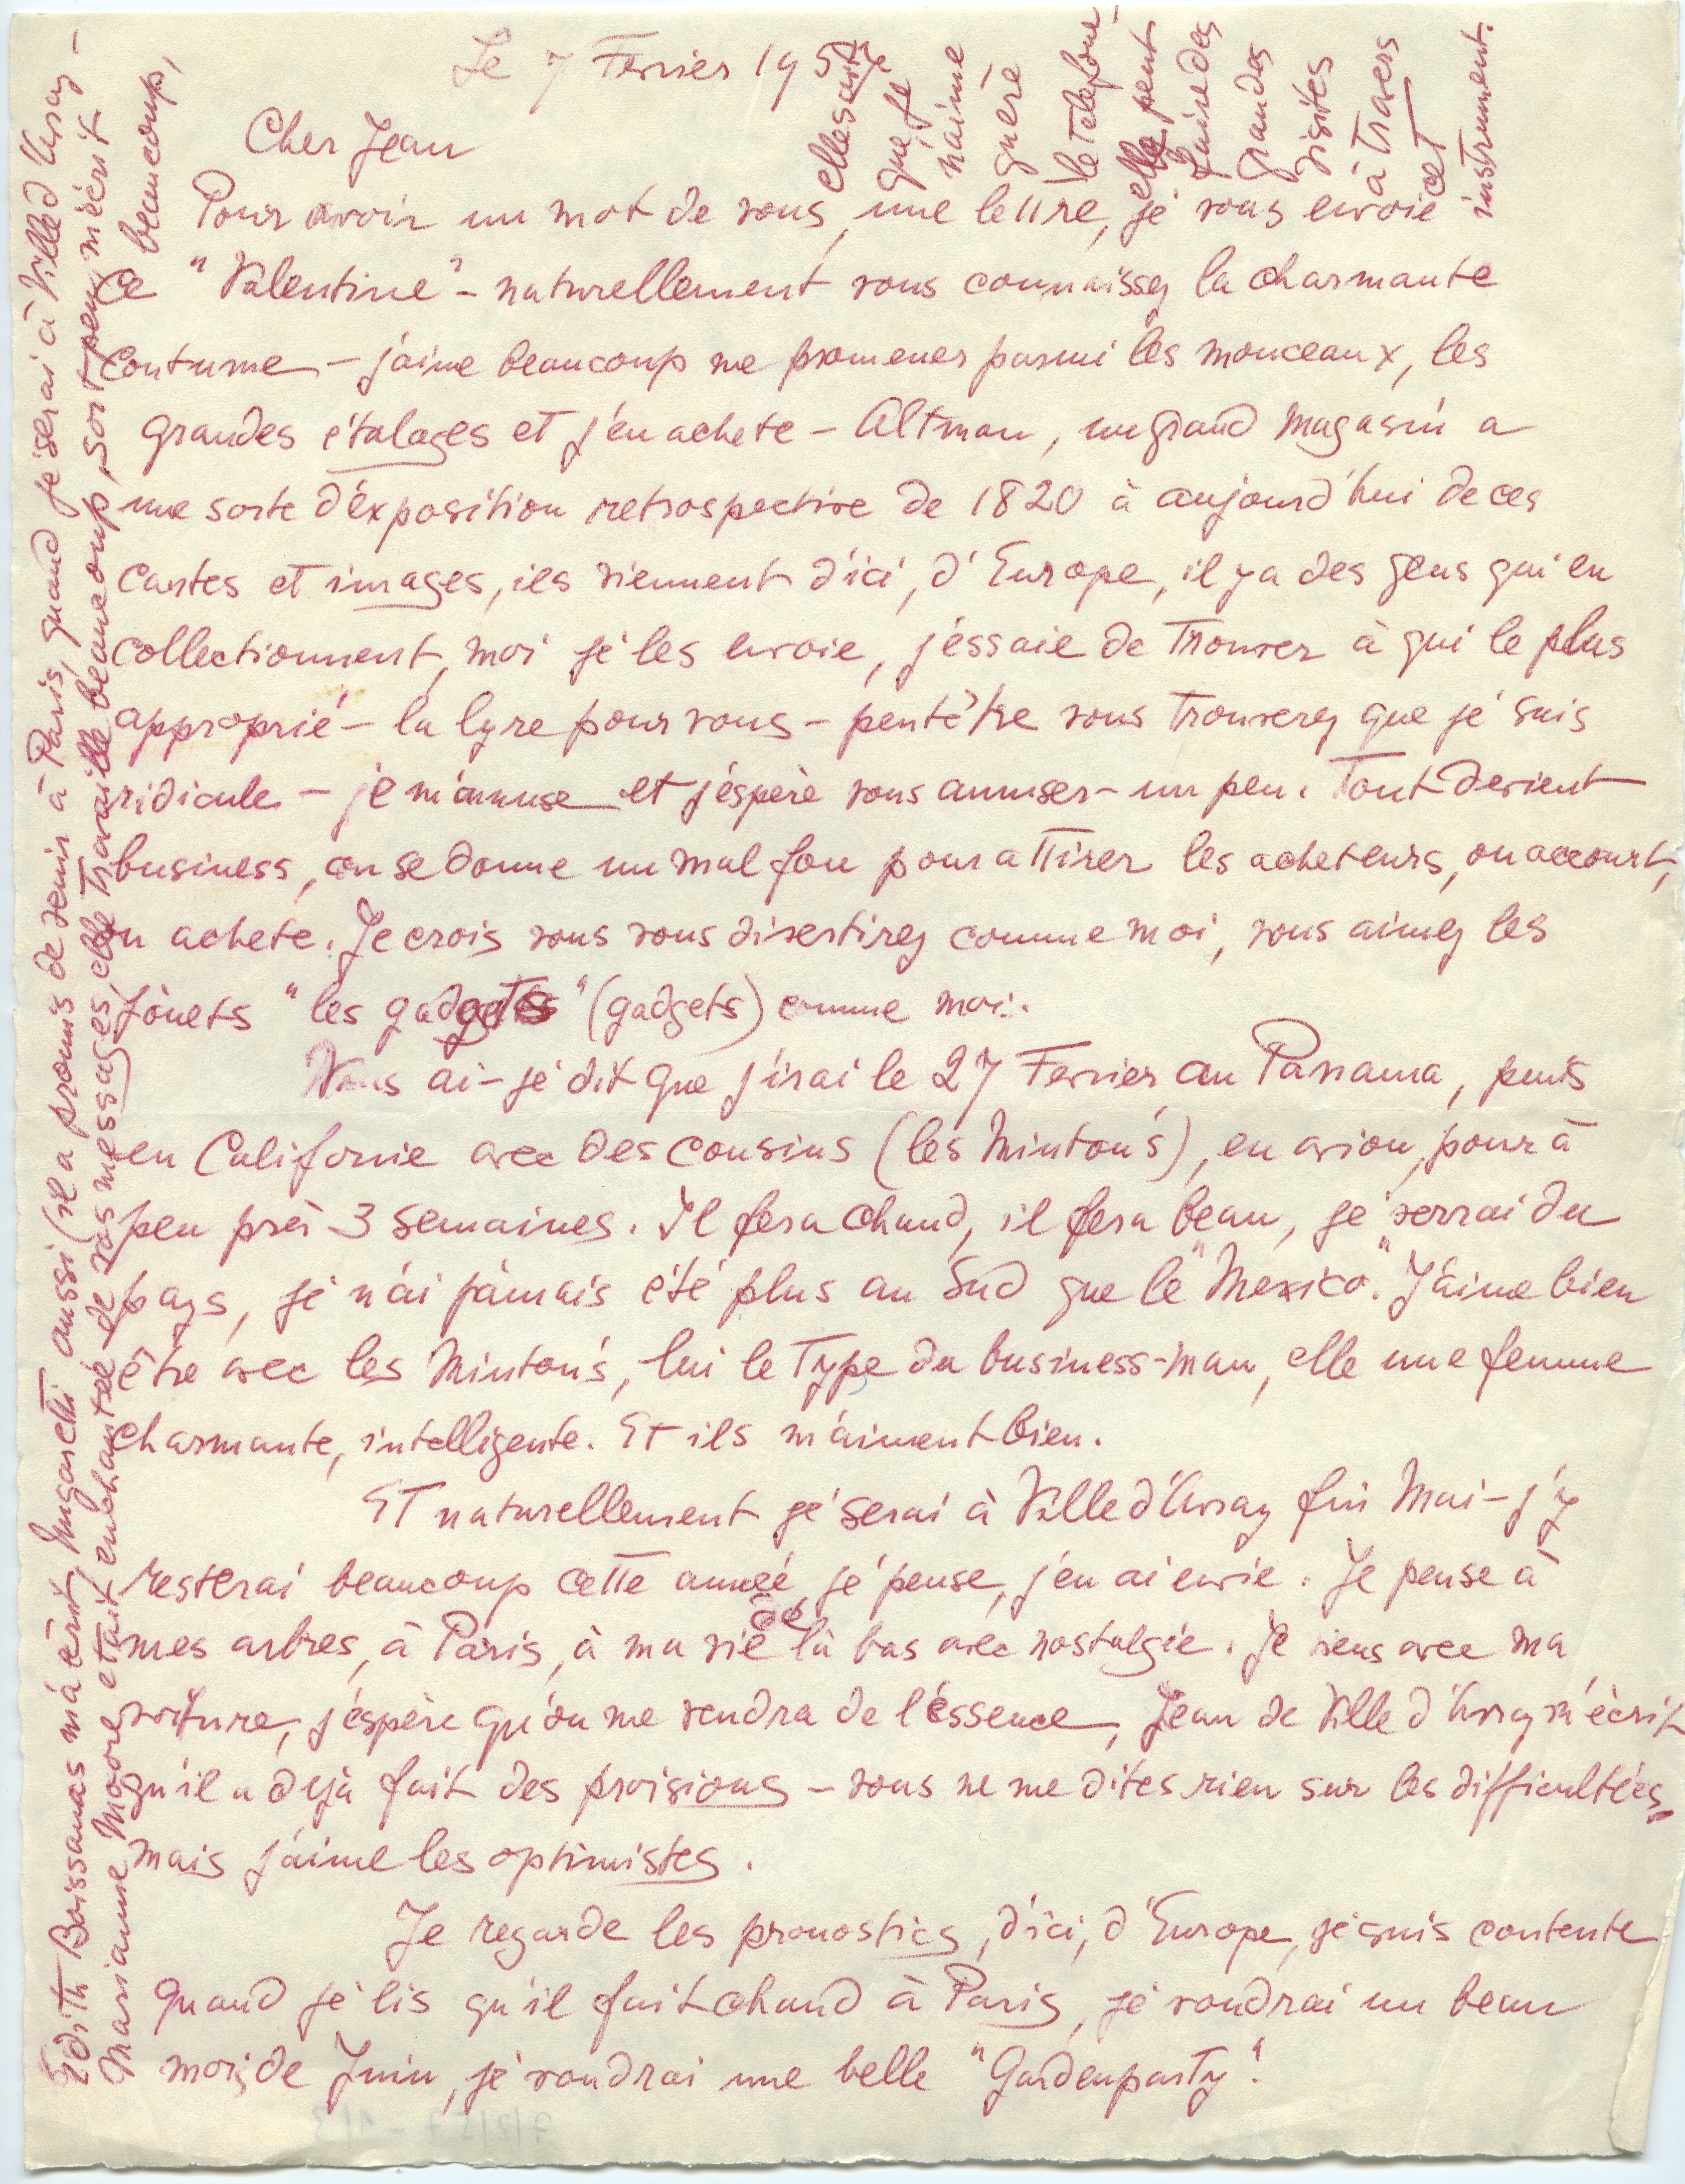 Le 7 Fevrier 1957
Cher Jean
Pour avoir un mot de vous, une lettre, je vous envoie
ce "Valentine" - naturellement vous connaissez la charmante
coutume - j'aime beaucoup me promener parmi les monceaux, les
grandes étalages et j'en achete - Altman, un grand magasin a
une sorte d'éxposition retrospective de 1820 à aujourd'hui de ces
cartes et images, ils viennent d'ici, d'Europe, il y a des gens qui en
collectionnent, moi je les envoie, j'éssaie de trouver à qui le plus
approprié - la lyre pour vous - peutêtre vous trouverez que je suis
ridicule - je m'amuse et j'éspère vous amuser - un peu. Tout devient
business, on se donne un mal fou pour attirer les acheteurs, on accourt,
on achete. Je crois vous vous divertirez comme moi, vous aimez les
jouets "les gadgets" (gadgets) comme moi.
Vous ai-je dit que j'irai le 27 Fevrier au Panama, puis
en Califonie avec des cousins (les Minton's), en avion, pour à
peu près 3 semaines. Il fera chaud, il fera beau, je verrai du
pays, je n'ai jamais été plus au Sud que le "Mexico". J'aime bien
être avec les Minton's, lui le type du business-man, elle une femme
charmante, intelligente. Et ils m'aiment bien.
Et naturellement je serai à Ville d'Avray fin Mai - j'y
resterai beaucoup cette année je pense, j'en ai envie. Je pense à
mes arbres, à Paris, à ma vie de là bas avec nostalgie. Je viens avec ma
voiture, j'éspère qu'on me vendra de l'éssence, Jean de Ville d'Avray m'écrit
qu'il a dejà fait des provisions - vous ne me dites rien sur les difficultées,
mais j'aime les optimistes.
Je regarde les pronostics, d'ici, d'Europe, je suis contente
quand je lis qu'il fait chaud à Paris, je voudrai un beau
mois de Juin, je voudrai une belle "Gardenparty".
Edith Boissonnas m'a écrit, Mugaretti aussi (il a promis de venir à Paris, quand je serai à Ville d'Avray -
Marianne Moore etait enchantée de vos messages, elle travaille beaucoup, sort peu, m'écrit
beaucoup,
elle sait
que je
n'aime
guère
le telefone -
elle peut
faire des
grandes
visites
à travers
cet
instrument.